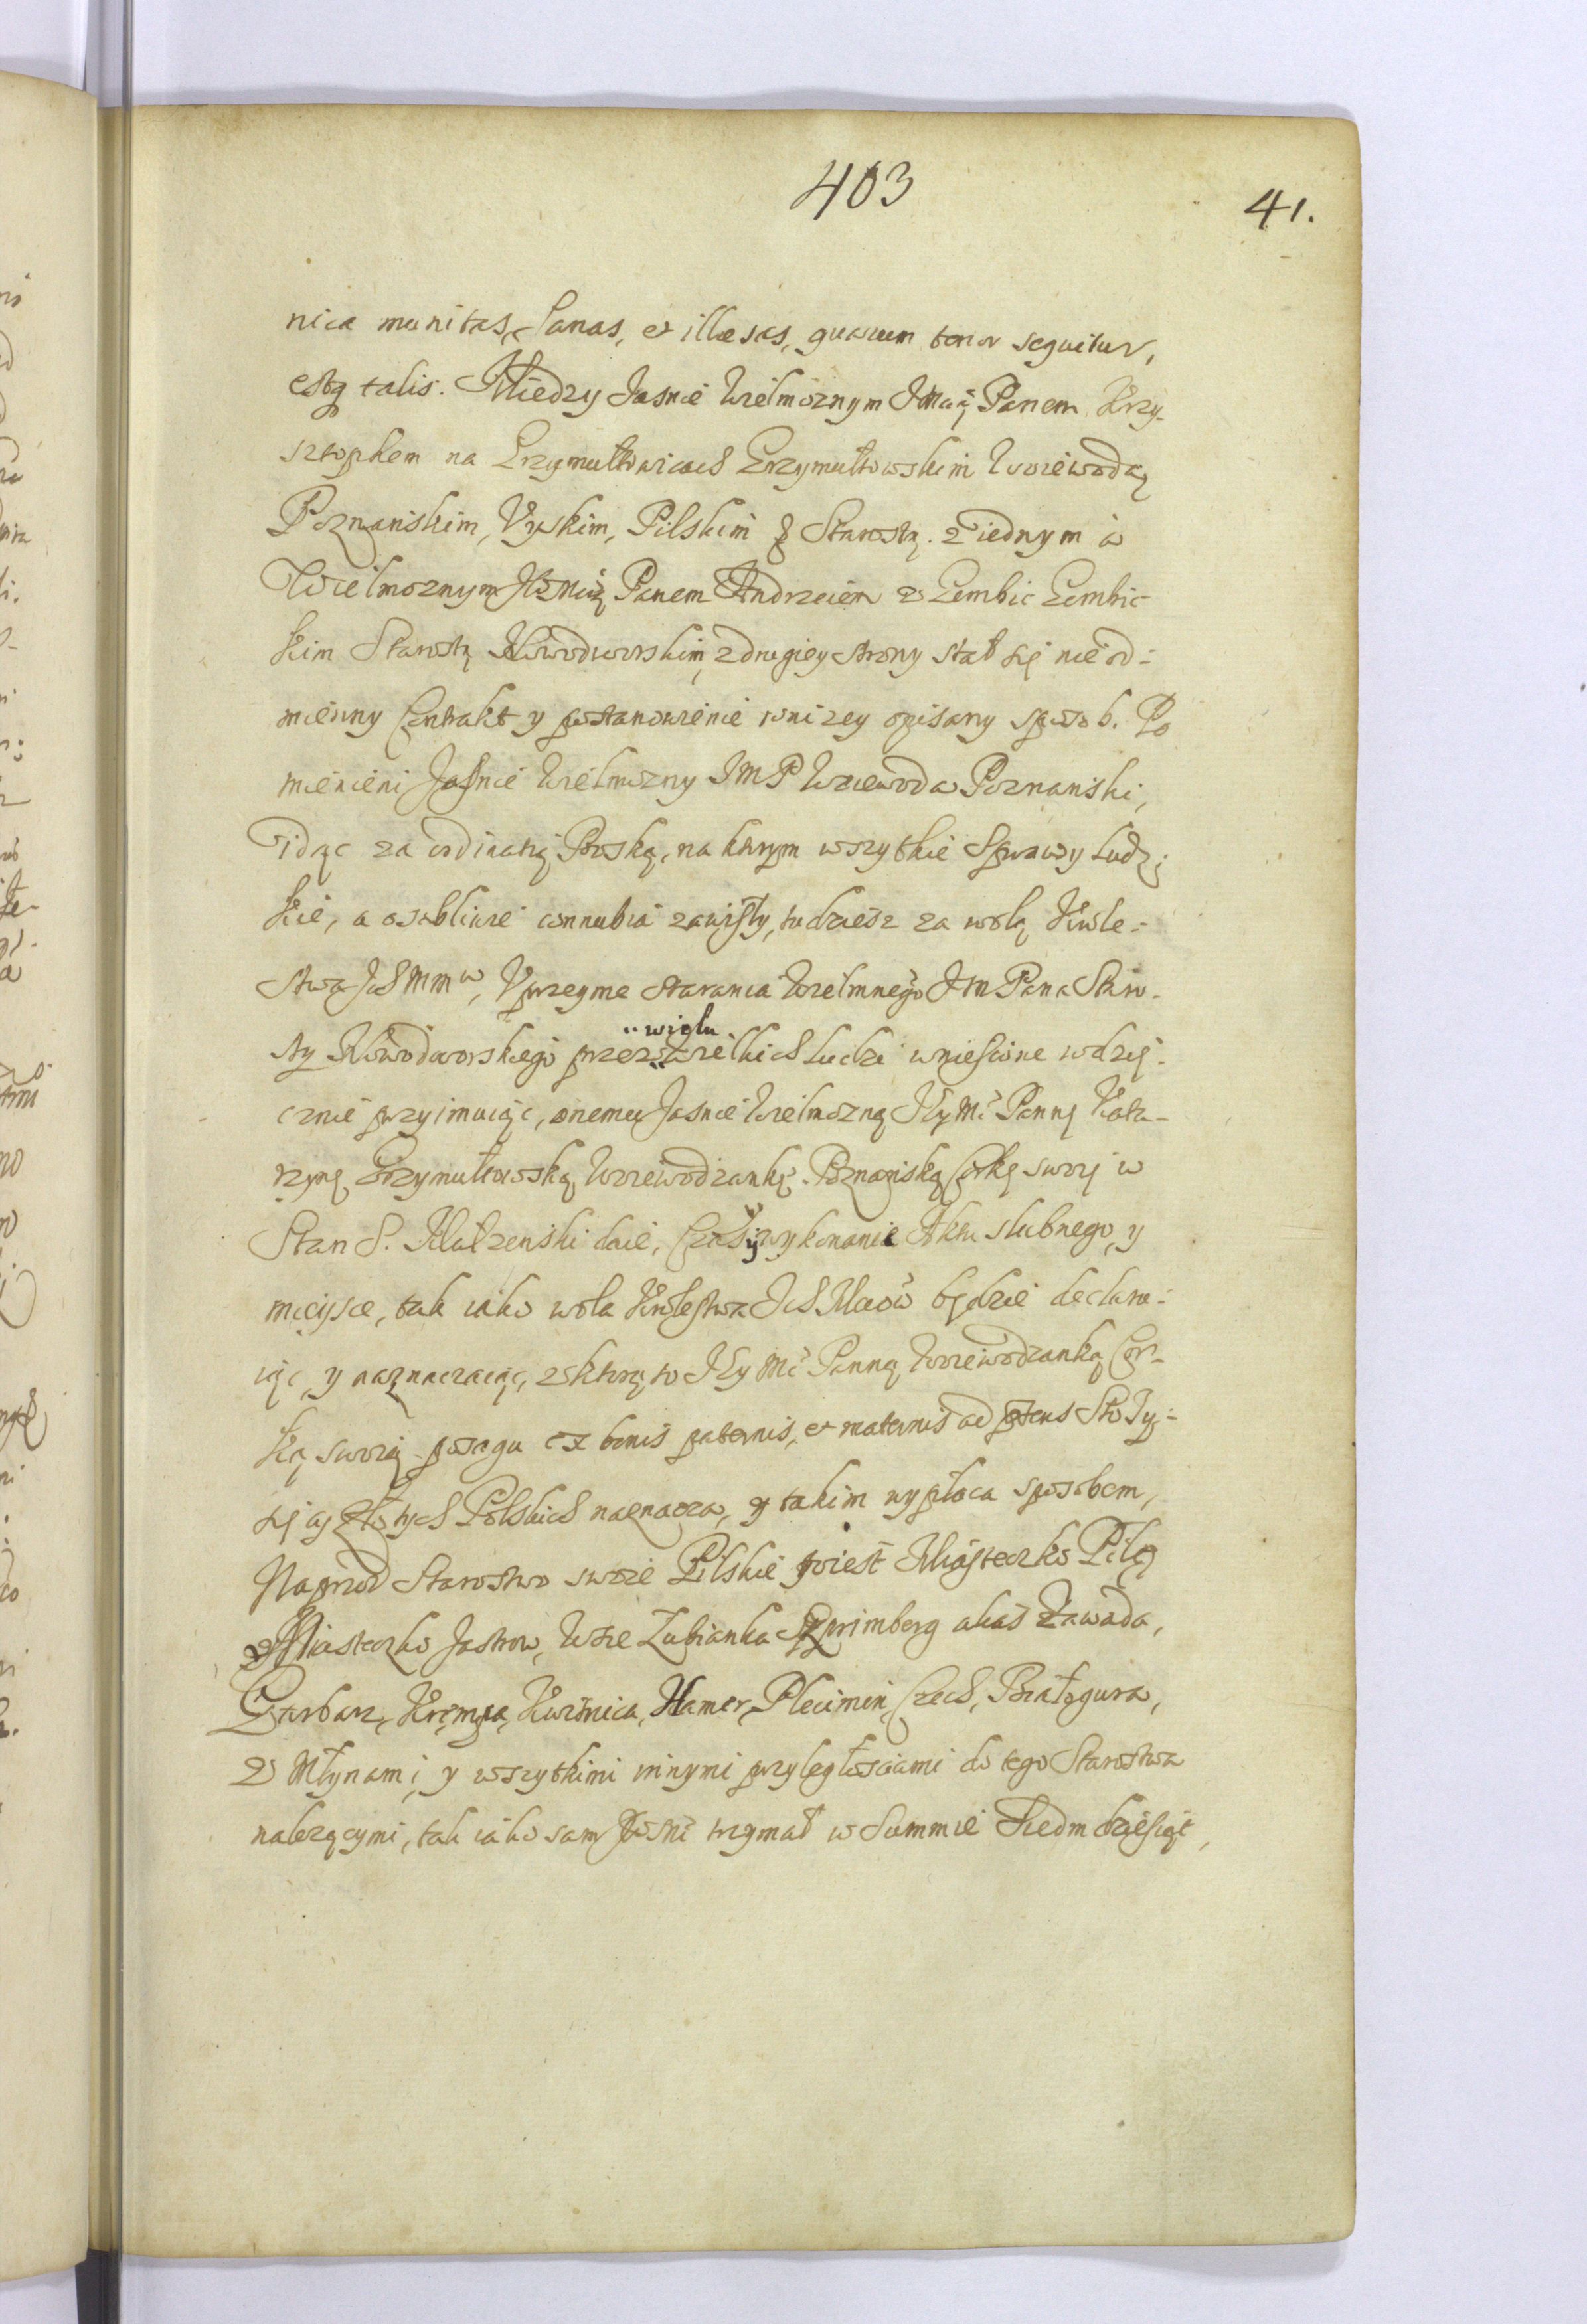 403
41.
nica munitas, Sanas, et illæsas, quarum tenor sequitur,
estq talis. Między Jasnie Wielmoznym JMcią Panem Krzy-
sztophem na Grzymułtowicach Grzymułtowskim Woiewodą
Poznanskim, Uyskim, Pilskim & Starostą. z iednym a
Wielmoznym Panem Andrzeiem z Gembic Gembic-
kim Starostą Nowodworskim, z drugiey strony stał się nieod-
mienny Contrakt y postanowienie wnizey opisany sposob. Po
mienieni Jasnie Wielmozny JMP Woiewoda Poznanski,
idąc za ordinatią Boską, na ktorym wszytkie Sprawy ludz-
kie, a osobliwie connubia zawisły, tudziesz za wolą Krole-
stwa Ich Mmw, Uprzeyme starania Wielmnego JM Pana Staro-
sty Nowodworskiego przez wielu wielkich Ludzi wniesione wdzię-
cznie przyimuiąc, onemu Jasnie Wielmozną Jey Mć Pannę Kata-
rzynę Grzymułtowską Woiewodzankę Poznanską Corkę swoię w
Stan S. Małzenski daie, Czas y wykonanie Aktu slubnego, y
mieysce, tak iako wola Krolestwa Ich Mciow będzie declaru-
iąc y naznaczaiąc, z ktorą to Jey Mć Panną Woiewodzanką Cor-
ką swoią posagu ex bonis paternis, et maternis ad Sto Ty-
sięcy Złotych Polskich naznacza, y takim wypłaca sposobem,
Naprzod Starostwo swoie Pilskie to iest Miasteczko Piłę
Miasteczko Jastrow, Wsie Lubianka Szprimberg alias Zawada,
Garbarz, Krempa, Kuznica, Hamer, Plecimin, Czech, Białęgura,
z Młynami, y wszytkimi innymi przyległosciami do tego Starostwa
nalezącymi, tak iako sam trzymał w Summie Siedmdziesiąt